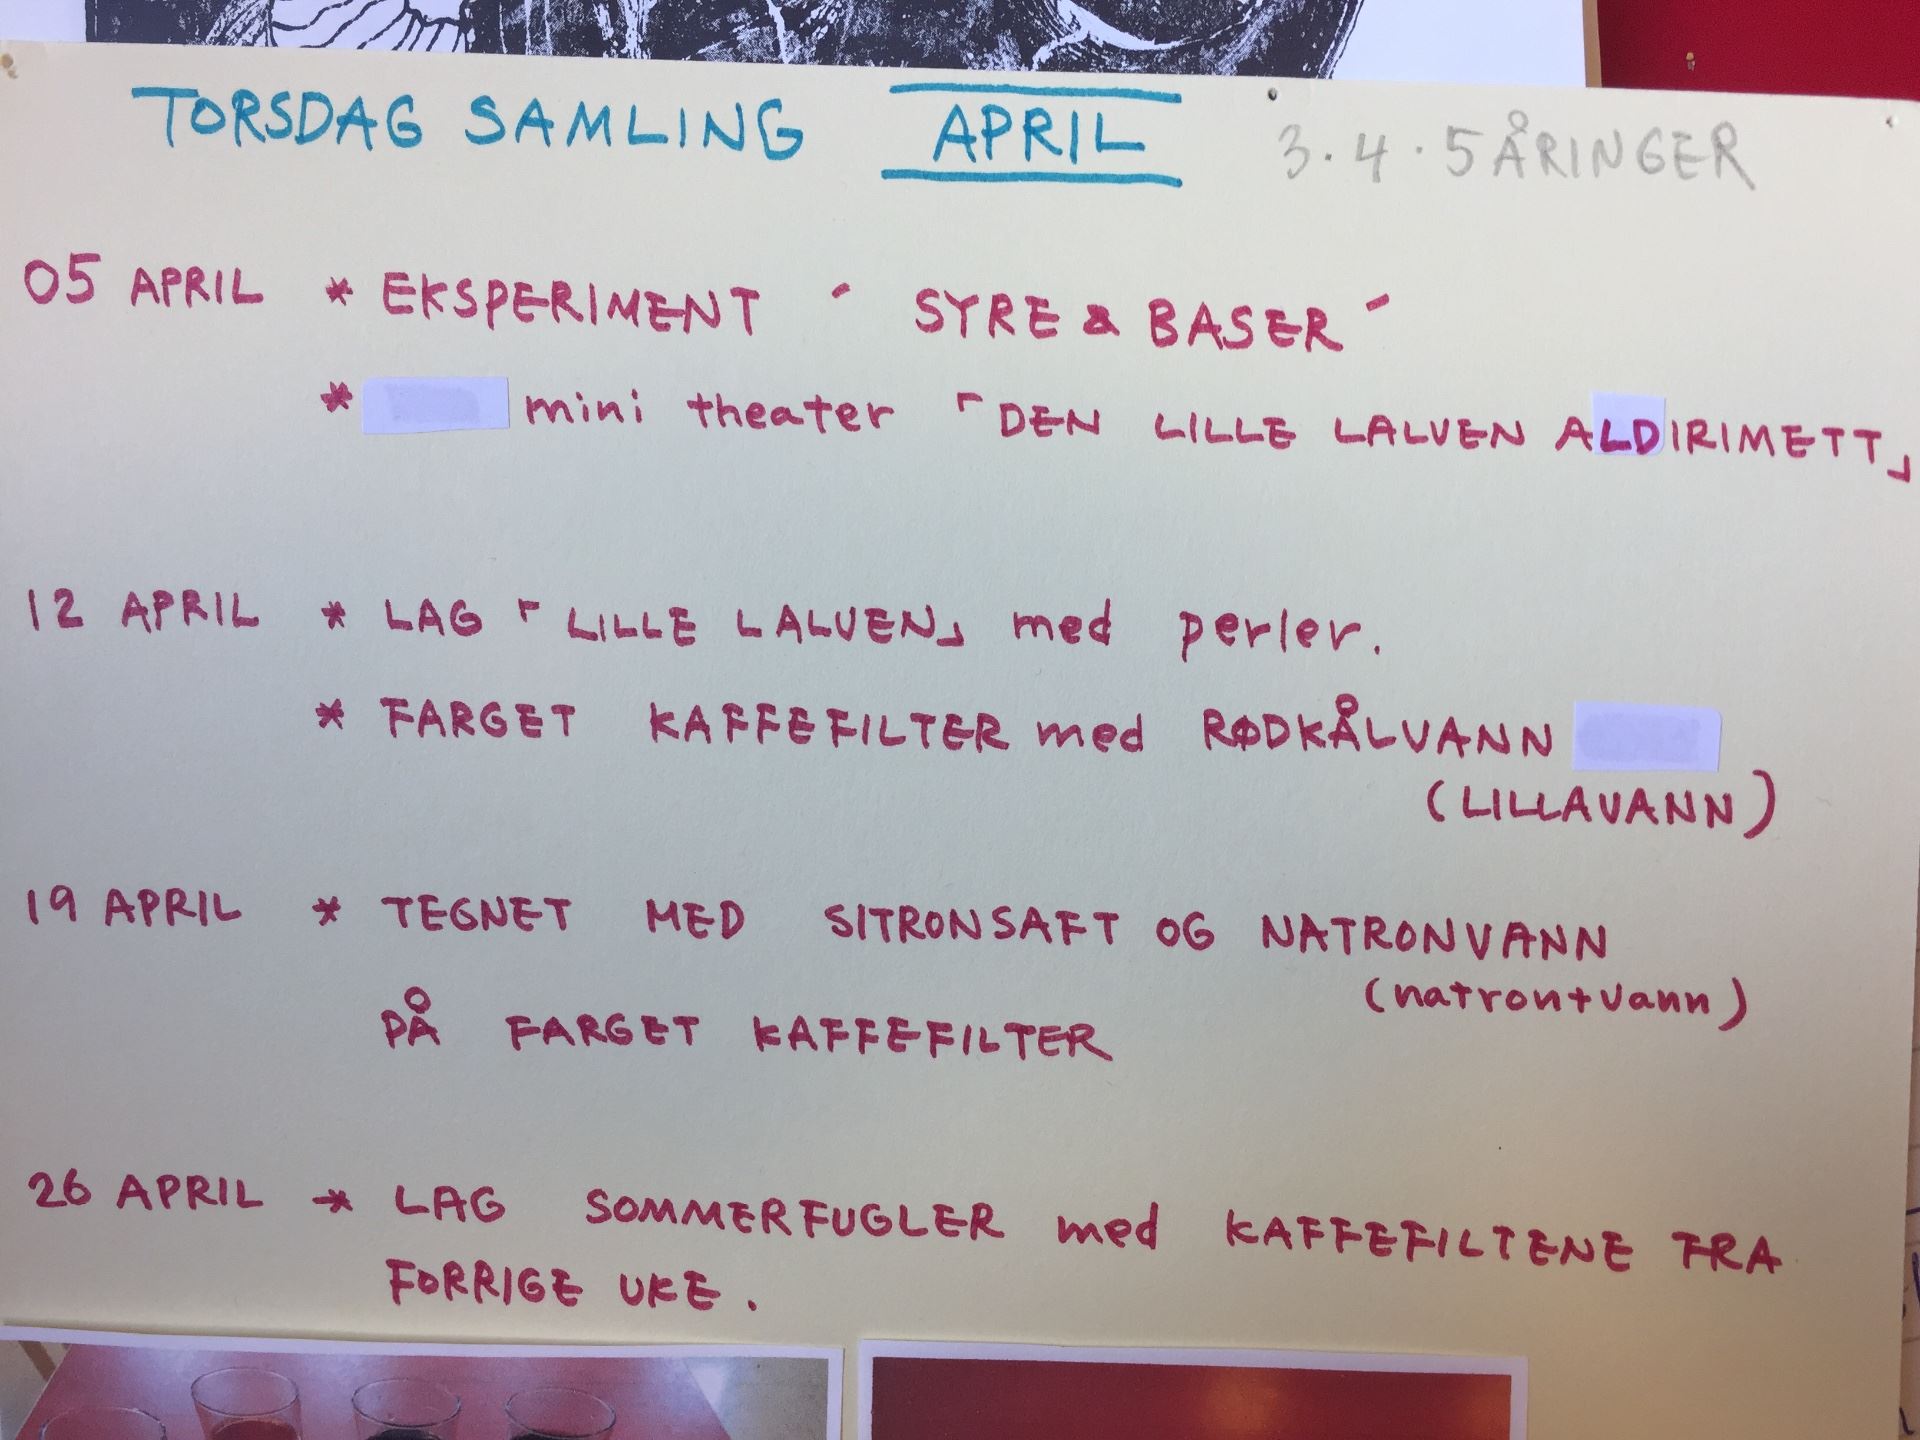 TORSDAG SAMLING APRIL 3.4.5 ÅRINGER
05 APRIL * EKSPERIMENT ´ SYRE & BASER ´
* mini theater 「DEN LILLE LALVEN ALDIRIMETT」
12 APRIL * LAG 「LILLE LALVEN」 med perler.
* FARGET KAFFEFILTER med RØDKÅLVANN
(LILLAVANN)
19 APRIL * TEGNET MED SITRONSAFT OG NATRONVANN
(natron+vann)
PÅ FARGET KAFFEFILTER
26 APRIL * LAG SOMMERFUGLER med KAFFEFILTENE FRA
FORRIGE UKE.